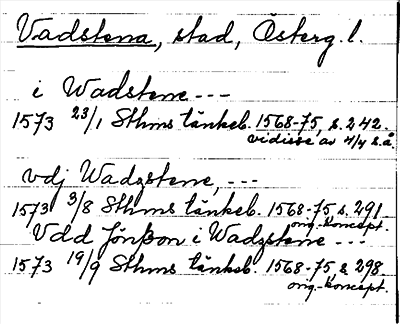 Vadstena, stad, Österg.l.
i Wadstene ---
1573 23/1 Sthms tänkeb. 1568-75, s. 242.
vidisse av 4/4 s.å.
vdj Wadzstene, ---
1573 3/8 Sthms tänkeb. 1568-75, s. 291
orig.-koncept.
Vdd Jönsson i Wadzstene ---
1573 19/9 Sthms tänkeb. 1568-75, s 298
orig.-koncept.